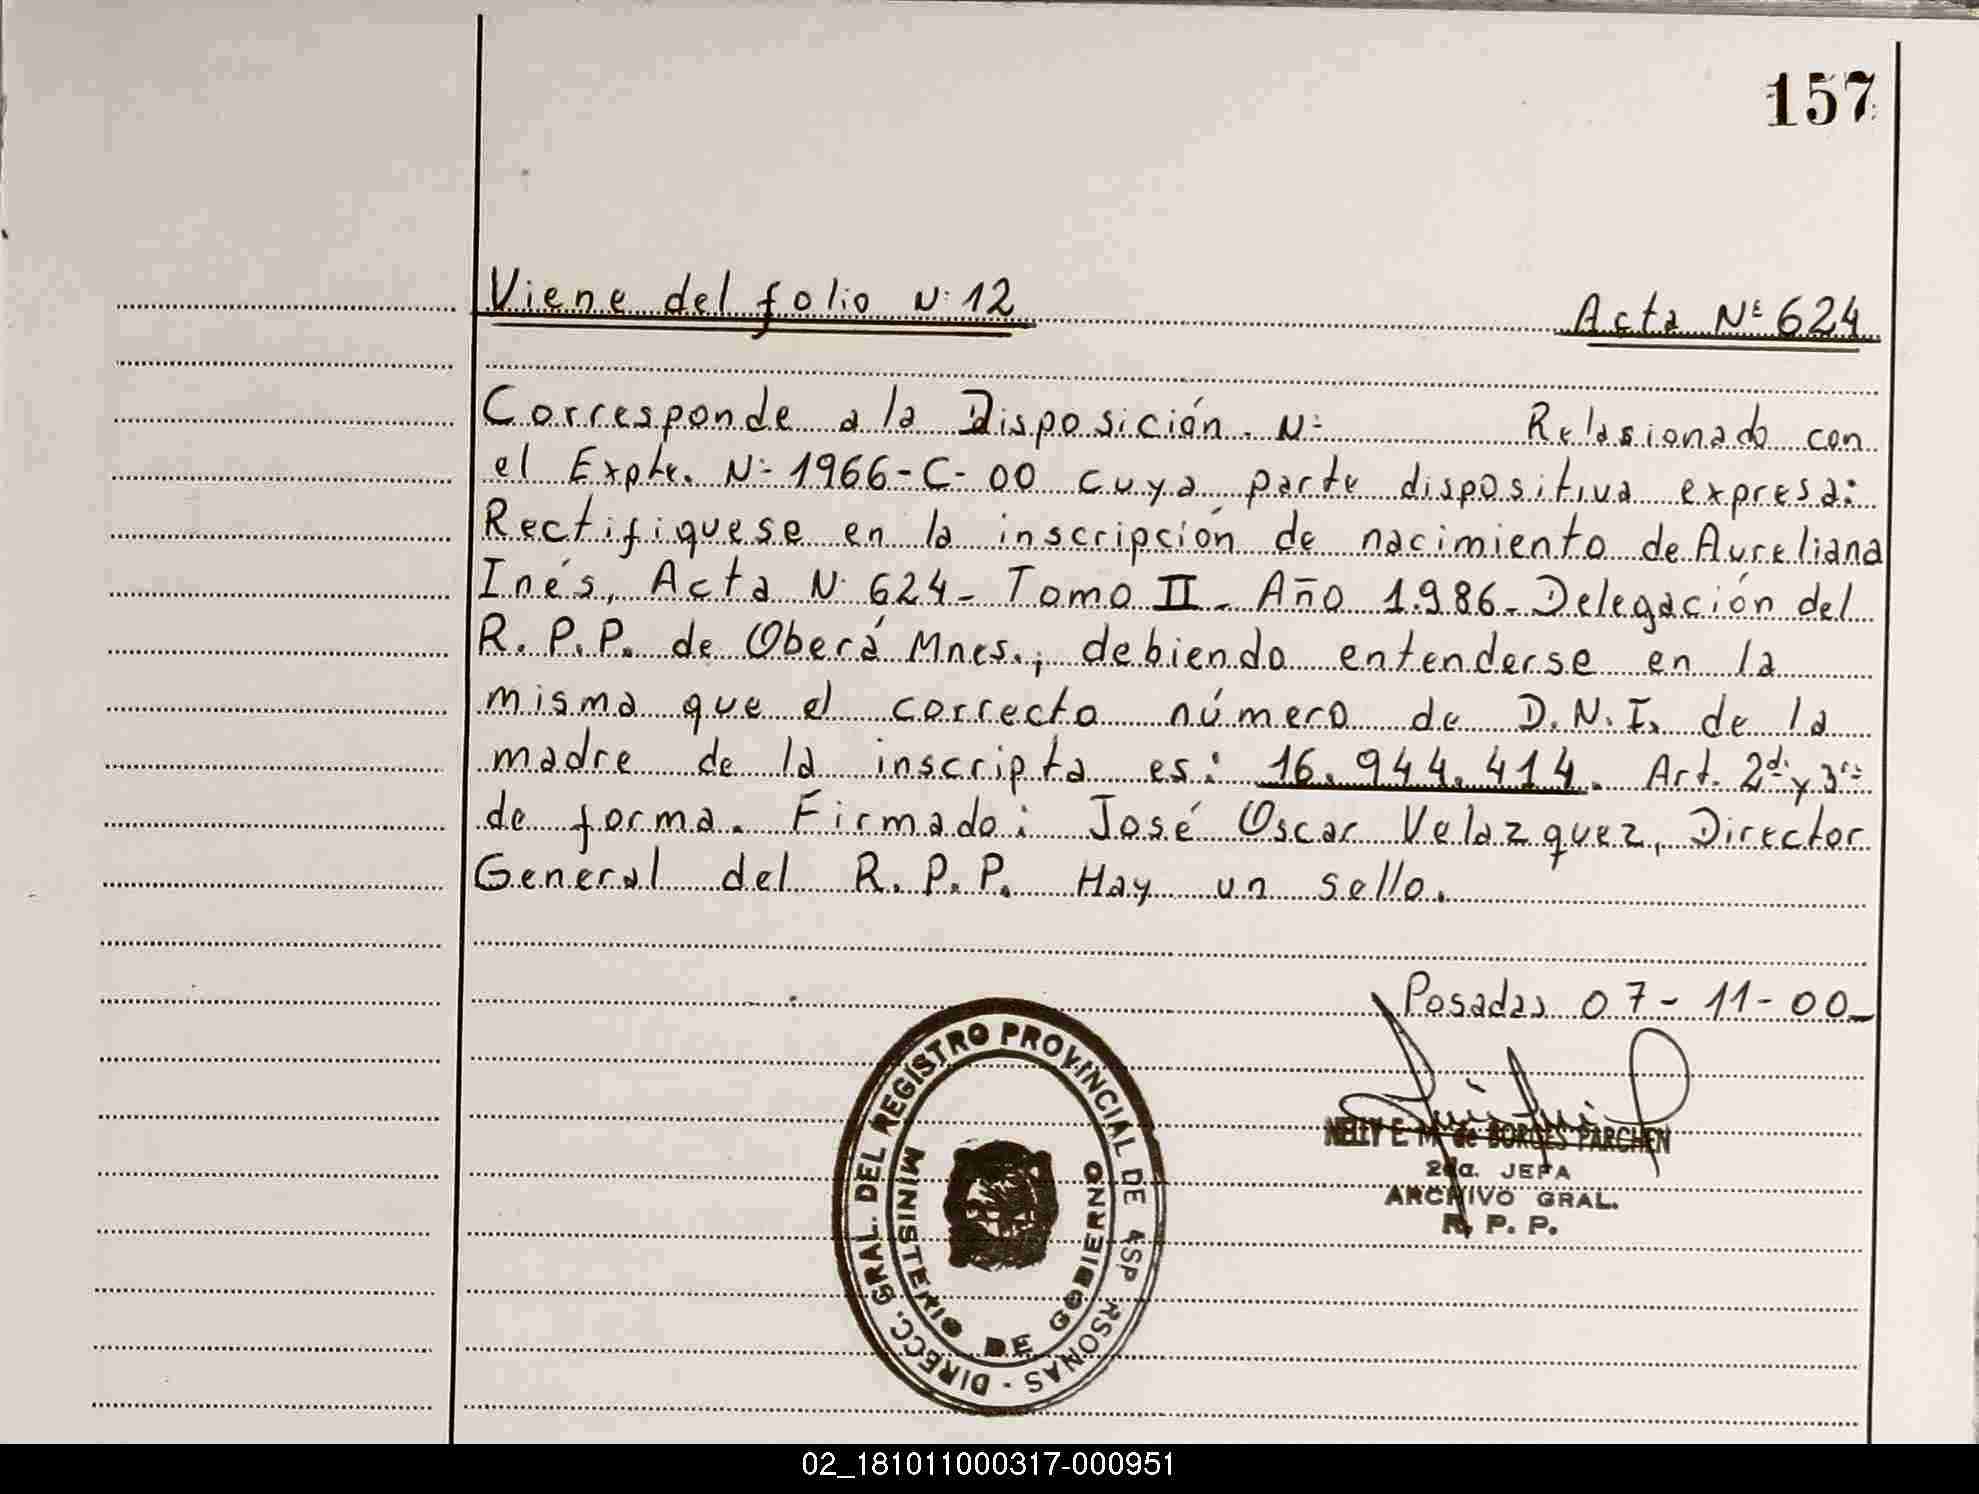 157
Viene del folio N: 12 Acta Nº 624
Corresponde a la Disposición. N: Relasionado con
el Expte. N: 1966-C-00 cuya parte dispositiva expresa:
Rectifiquese en la inscripción de nacimiento de Aureliana
Inés, Acta N: 624- Tomo II- Año 1.986- Delegación del
R.P.P. de Oberá Mnes., debiendo entenderse en la
misma que el correcto número de D.N.I. de la
madre de la inscripta es: 16.944.414. Art. 2do y 3ro
de forma. Firmado: José Oscar Velazquez, Director
General del R.P.P. Hay un sello.
Posadas 07-11-00-
DIRECC. GRAL. DEL REGISTRO PROVINCIAL DE RSONAS -
MINISTERIO DE GOBIERNO
NELLY E. M. de BORGES PARCHEN
2da. JEFA
ARCHIVO GRAL.
R. P. P.
02_181011000317-000951